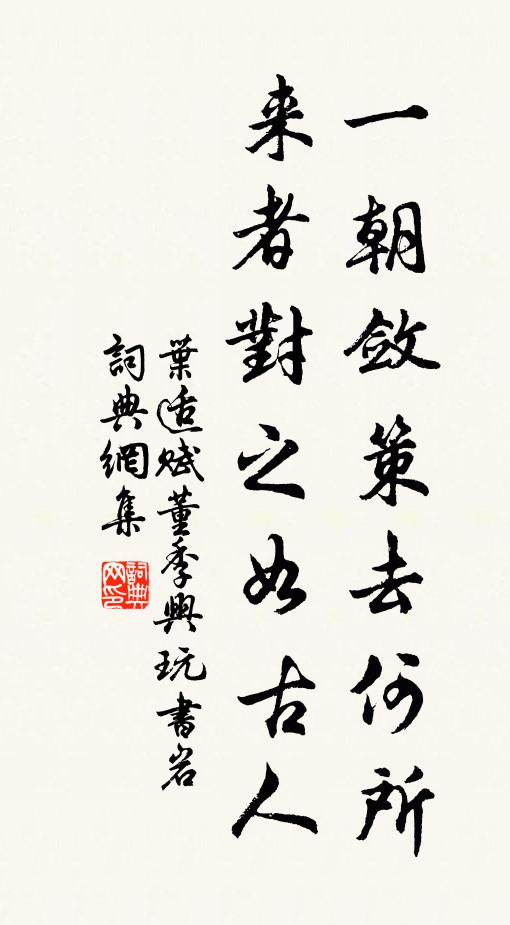 一朝斂策去何所
来者對之如古人
葉适赋董季興玩書岩
詞典網集
詞典网印